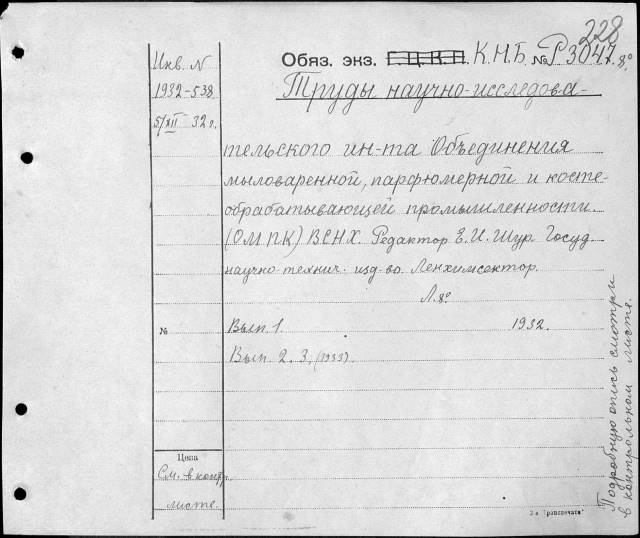 228
Обяз. экз. Г.Ц.К.П. К.Н.Б. № Р3047.8º
Инв. N
1932-538
5/XII 32 г.
Труды научно-исследова-
тельского ин-та Объединения
мыловаренной, парфюмерной и косте-
обрабатывающей промышленности.
(ОМПК) ВСНХ. Редактор Е.И. Шур Госуд.
научно-технич. изд-во. Ленхимсектор.
Л. 8º
№ Вып 1. 1932.
Вып. 2. 3. (1933).
Цена
См. в контр.
листе.
Подробную опись смотри
в контрольном листе.